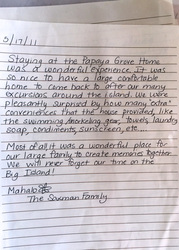 5/17/11
Staying at the Papaya Grove Home
was a wonderful experience. It was
so nice to have a large comfortable
home to come back to after our many
excursions around the island. We were
pleasantly surprised by how many "extra"
conveniences that the house provided, like
the swimming, snorkeling gear, towels, laundry
soap, condiments, sunscreen, etc...
Most of all it was a wonderful place for
our large family to create memories together
We will never forget our time on the
Big Island!
The Family